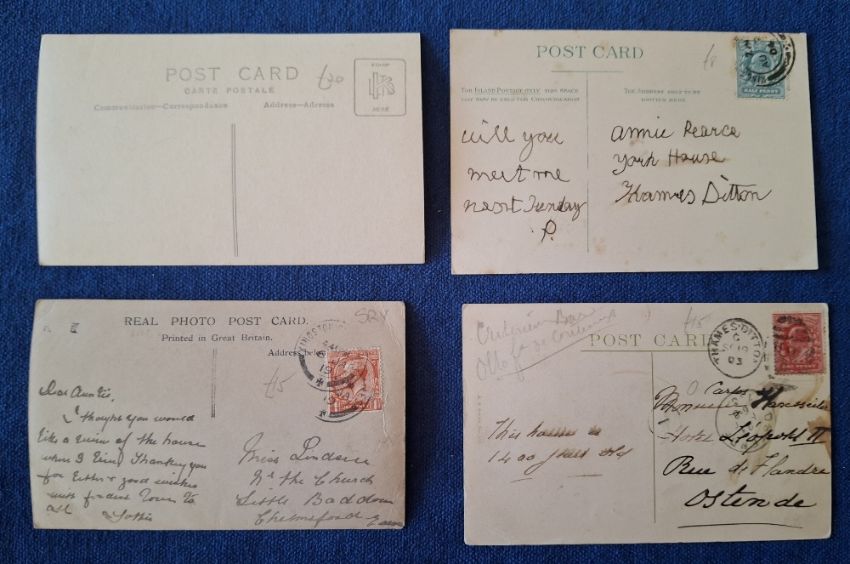 POST CARD
CARTE POSTALE
£20
STAMP
HERE
Communication—Correspondance
Address—Adresse
POST CARD
£8
HALF PENNY
FOR INLAND POSTAGE ONLY THIS SPACE
MAY NOW BE USED FOR COMMUNICATION
THE ADDRESS ONLY TO BE
WRITTEN HERE
will you
meet me
next Tuesday
P.
Annie Pearce
York House
Thames Ditton
REAL PHOTO POST CARD.
Printed in Great Britain.
SRY
Address
£15
KINGSTON
Dear Auntie,
I thought you would
like a view of the house
where I live. Thanking you
for letter & good wishes
with fondest love to
all
Miss Lindsell
Nr the Church
Little Baddow
Chelmsford
POST CARD
£15
THAMES DITTON
03
This house is
1400 years old
Hotel Léopold II
Rue de Flandre
Ostende